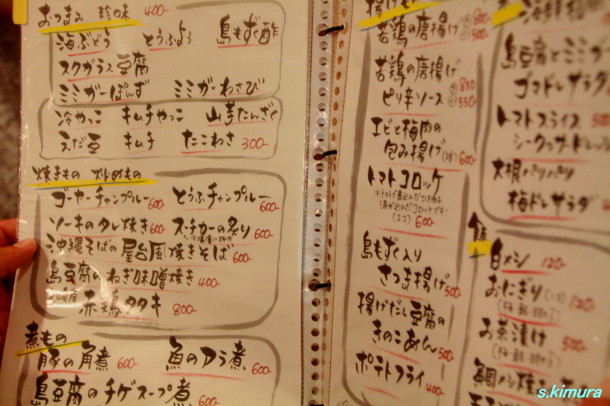 おつまみ 珍味 400-
海ぶどう とうふよう 島もずく酢
スクガラス豆腐
ミミガーぽんず ミミガーわさび
冷やっこ キムチやっこ 山芋たんざく
えだ豆 キムチ たこわさ 300-
焼きもの 炒めもの
ゴーヤーチャンプルー 600- とうふチャンプルー 600-
ソーキのタレ焼き 600- スーチカーの炙り 600-
沖縄そばの屋台風焼きそば 600-
島豆腐のねぎ味噌焼き 400-
赤鶏タタキ 800-
煮もの
豚の角煮 600- 魚のアラ煮 600-
島豆腐のチゲスープ煮 600-
揚げもの
若鶏の唐揚げ
若鶏の唐揚げ
ピリ辛ソース
エビと梅肉の
包み揚げ 600-
トマトコロッケ
600-
島もずく入り
さつま揚げ 500-
揚げだし豆腐の
きのこあん 500-
ポテトフライ 400-
島豆腐とミミガー
ゴマドレサラダ
トマトスライス 500-
シークヮサードレッシ
大根パリパリ
梅ドレサラダ
飯
白メシ 120-
おにぎり
お茶漬け 500-
鯛メシ
s.kimura